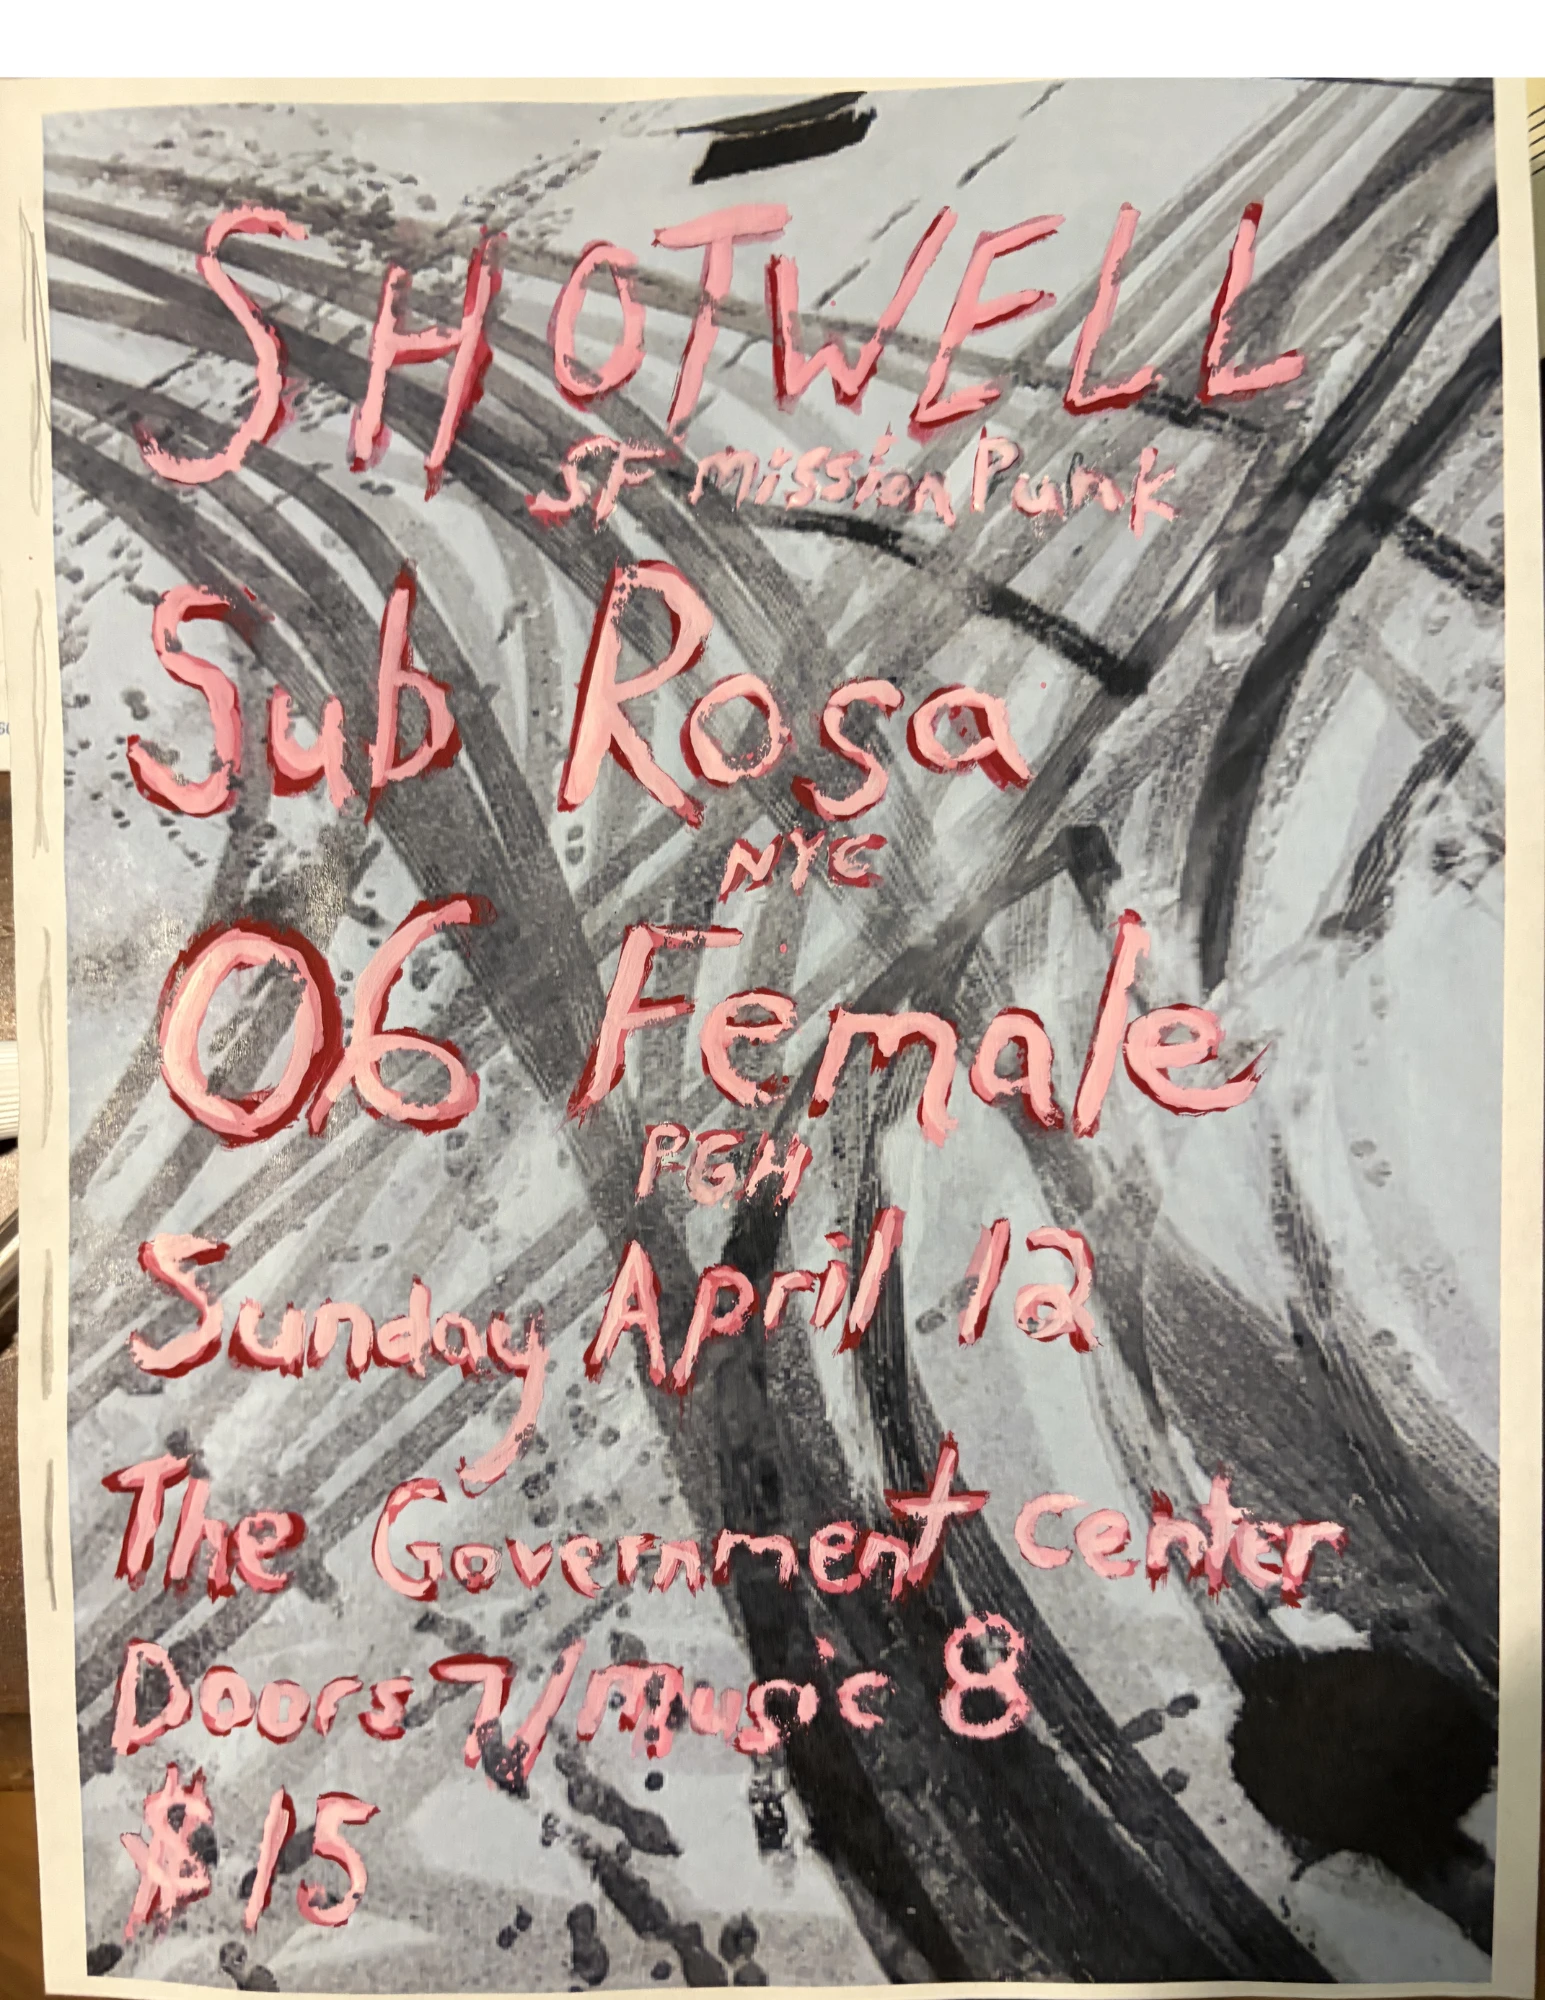 SHOTWELL
SF Mission Punk
Sub Rosa
NYC
06 Female
PGH
Sunday April 12
The Government center
Doors 7/music 8
$15